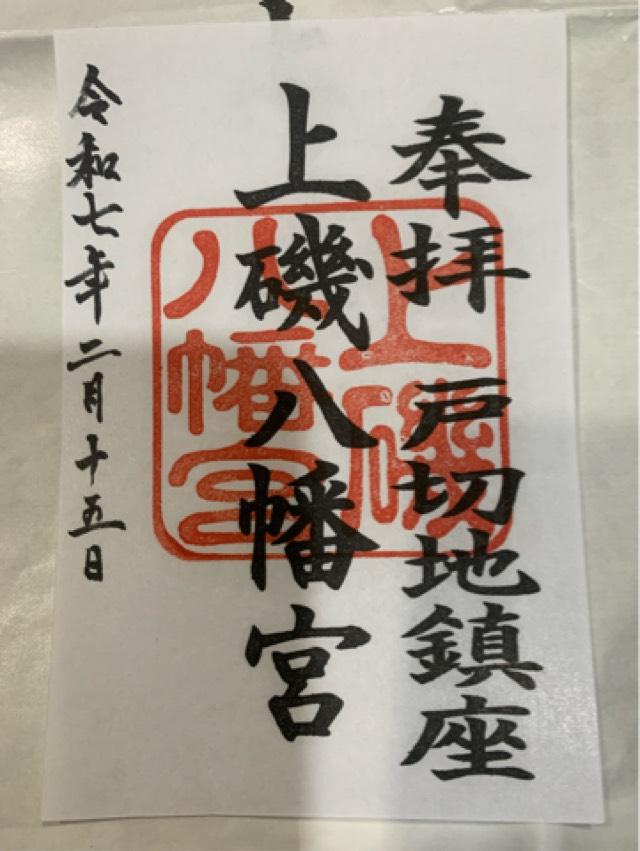 奉拝 戸切地鎮座
上磯八幡宮
上磯
八幡宮
令和七年二月十五日